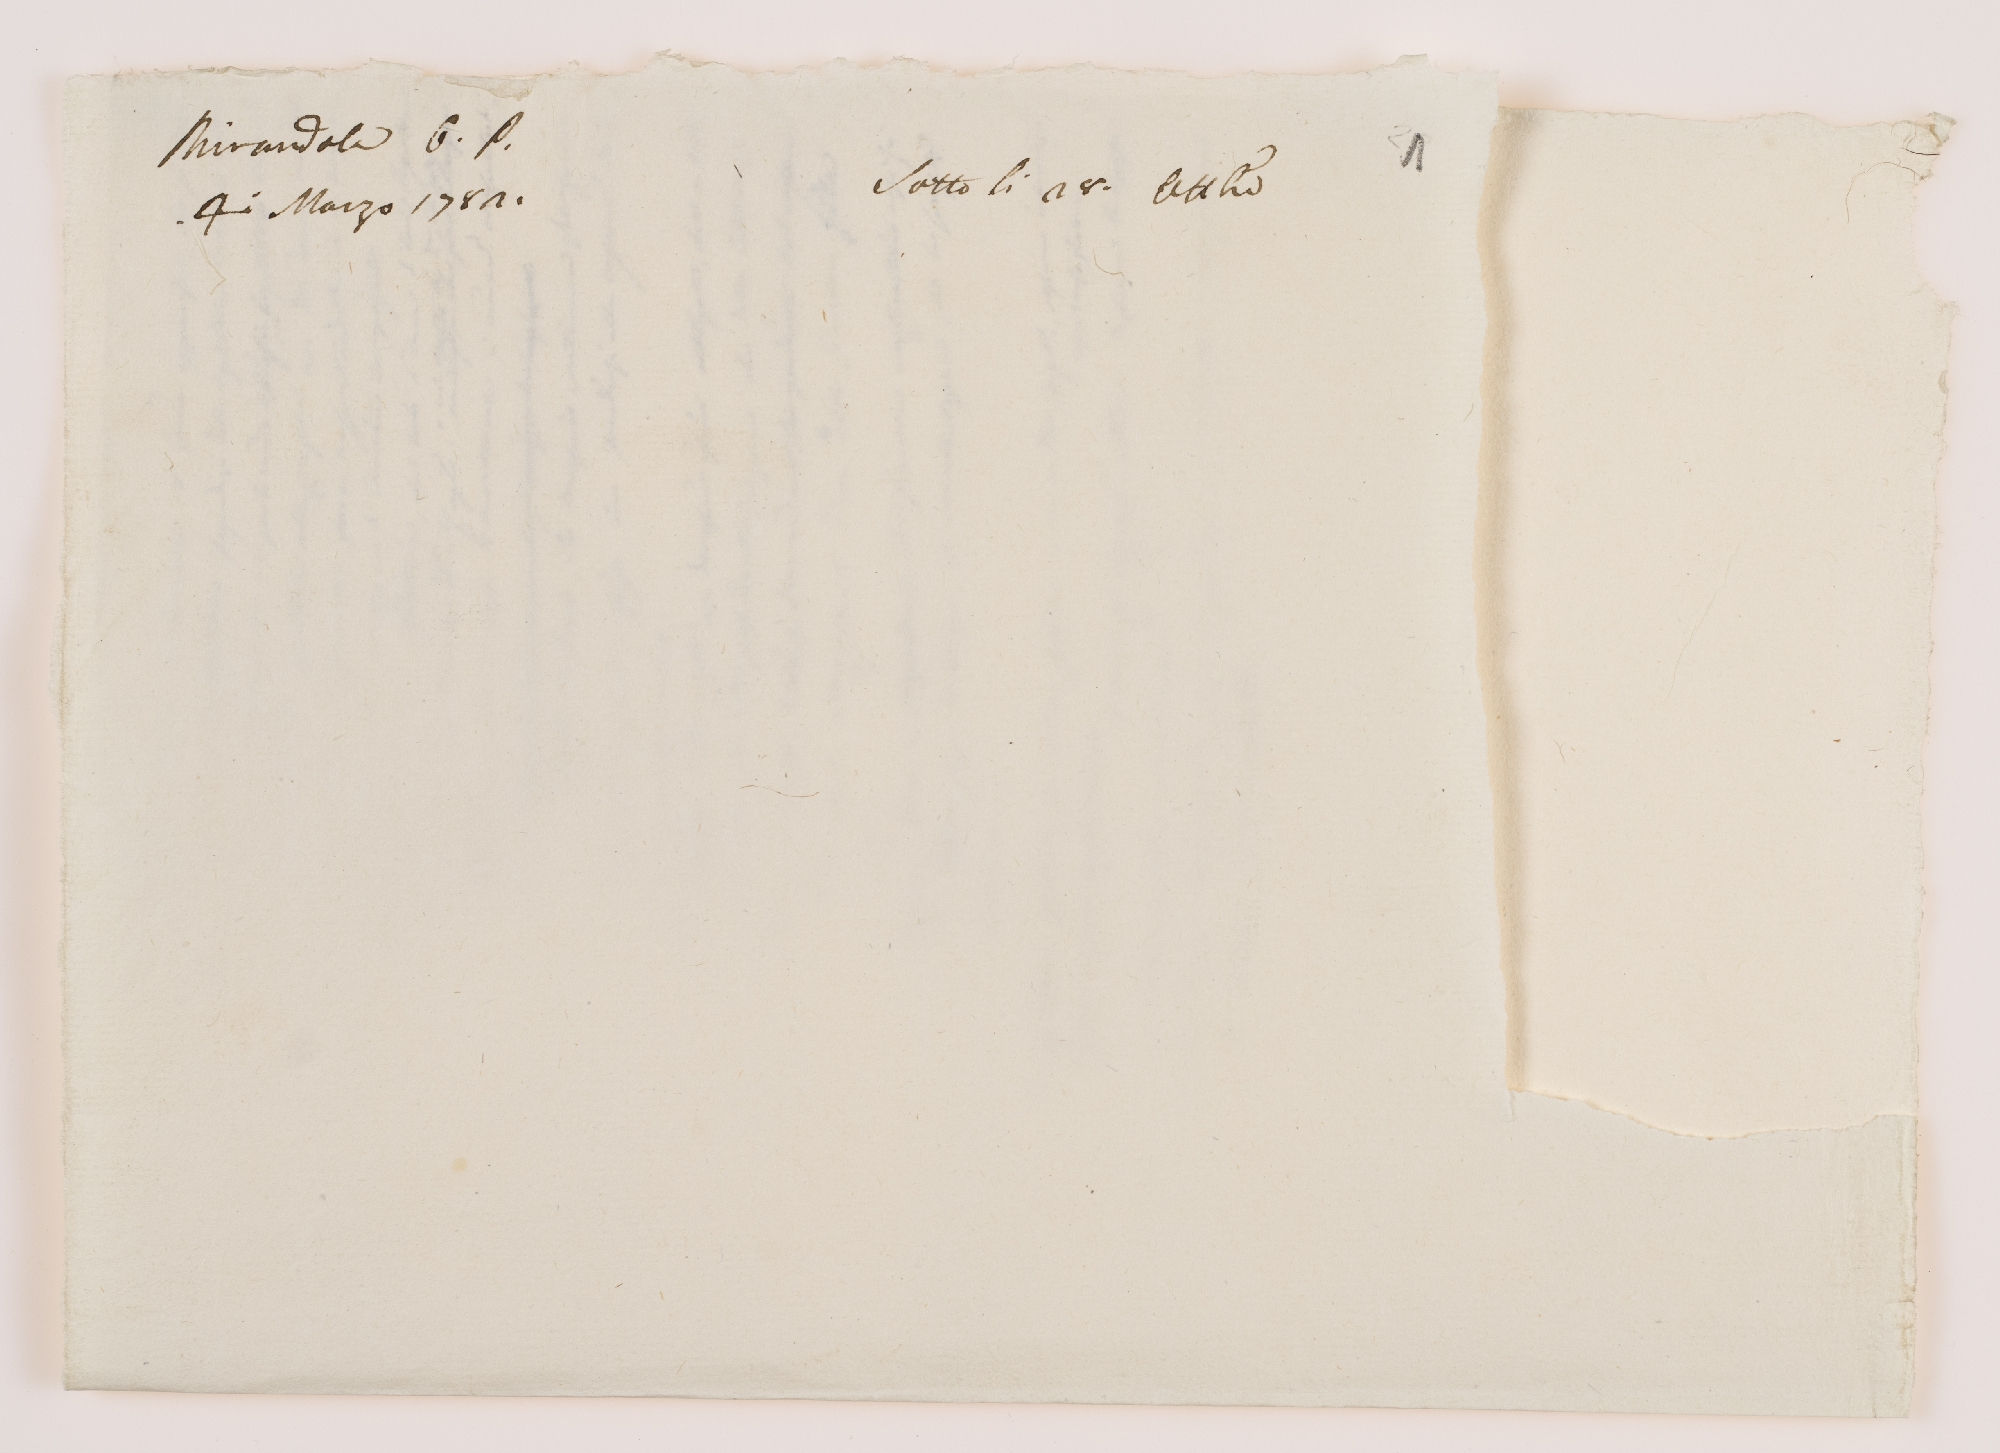 Mirandola G. P.
4 Marzo 1781.
Sotto li 18. Ottbr̃e
1